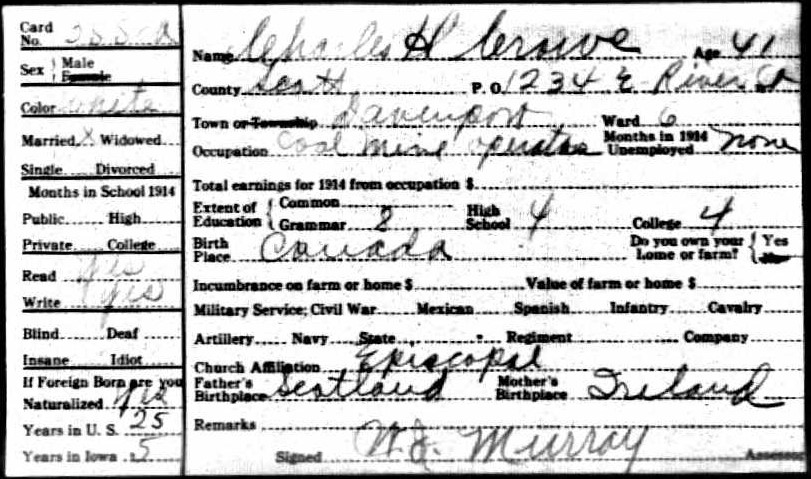 Card No.
Sex { Male Female
Color White
Married X Widowed
Single Divorced
Months in School 1914
Public High
Private College
Read Yes
Write Yes
Blind Deaf
Insane Idiot
If Foreign Born are you Naturalized Yes
Years in U. S. 25
Years in Iowa 15
Name Charles H Crowe Age 41
County Scott P. O. 1234 E River
Town or Township Davenport Ward 6
Occupation Coal mine operator Months in 1914 Unemployed None
Total earnings for 1914 from occupation $
Extent of Education { Common
Grammar 8 High School 4 College 4
Birth Place Canada Do you own your Lome or farm? { Yes No
Incumbrance on farm or home $ Value of farm or home $
Military Service; Civil War Mexican Spanish Infantry Cavalry
Artillery Navy State Regiment Company
Church Affiliation Episcopal
Father's Birthplace Scotland Mother's Birthplace Ireland
Remarks
Signed W.J. Murray Assessor